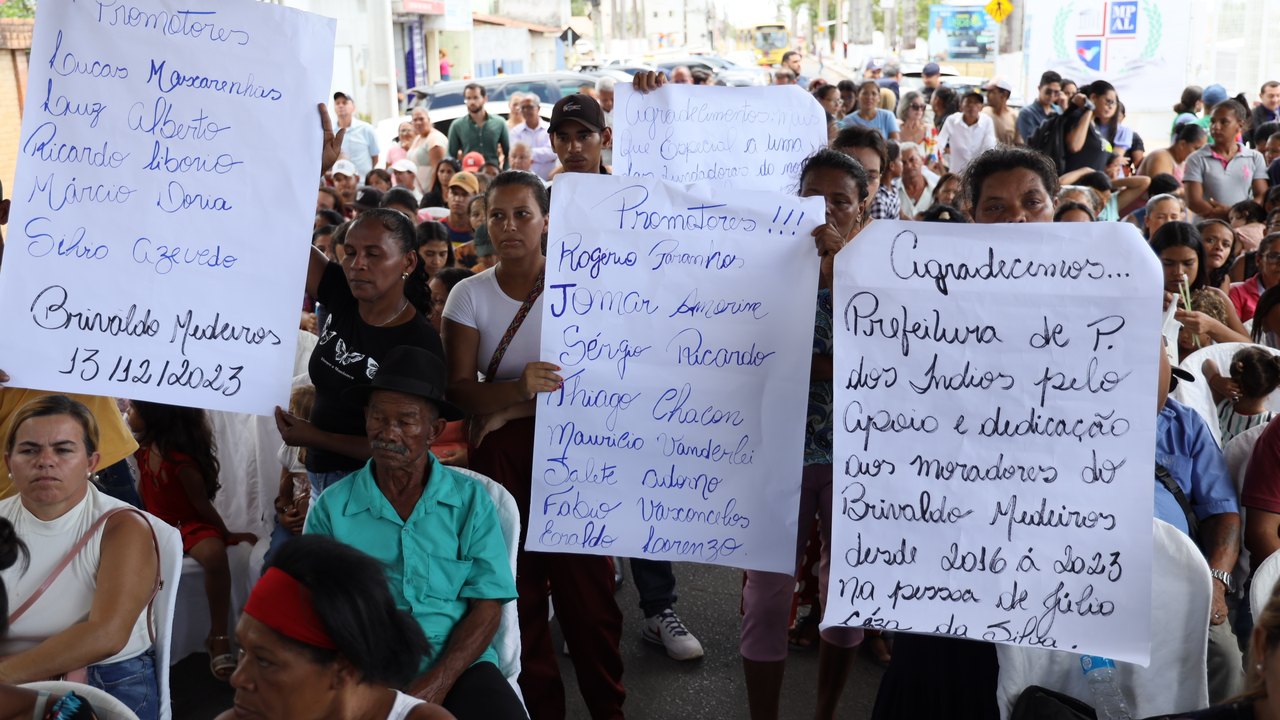 Promotores
Lucas Mascarenhas
Luiz Alberto
Ricardo Liborio
Márcio Doria
Silvio Azevedo
Brivaldo Medeiros
13/12/2023
Agradecimentos: mais
que Especial a uma
das fundadoras do
Promotores !!!
Rogério Paranhos
Jomar Amorim
Sérgio Ricardo
Thiago Chacon
Mauricio Vanderlei
Salete
Fábio Vasconcelos
Eraldo Lorenzo.
Agradecemos...
Prefeitura de P.
dos Indios pelo
apoio e dedicação
aos moradores do
Brivaldo Medeiros
desde 2016 á 2023
na pessoa de Júlio
da Silva.
MP
AL